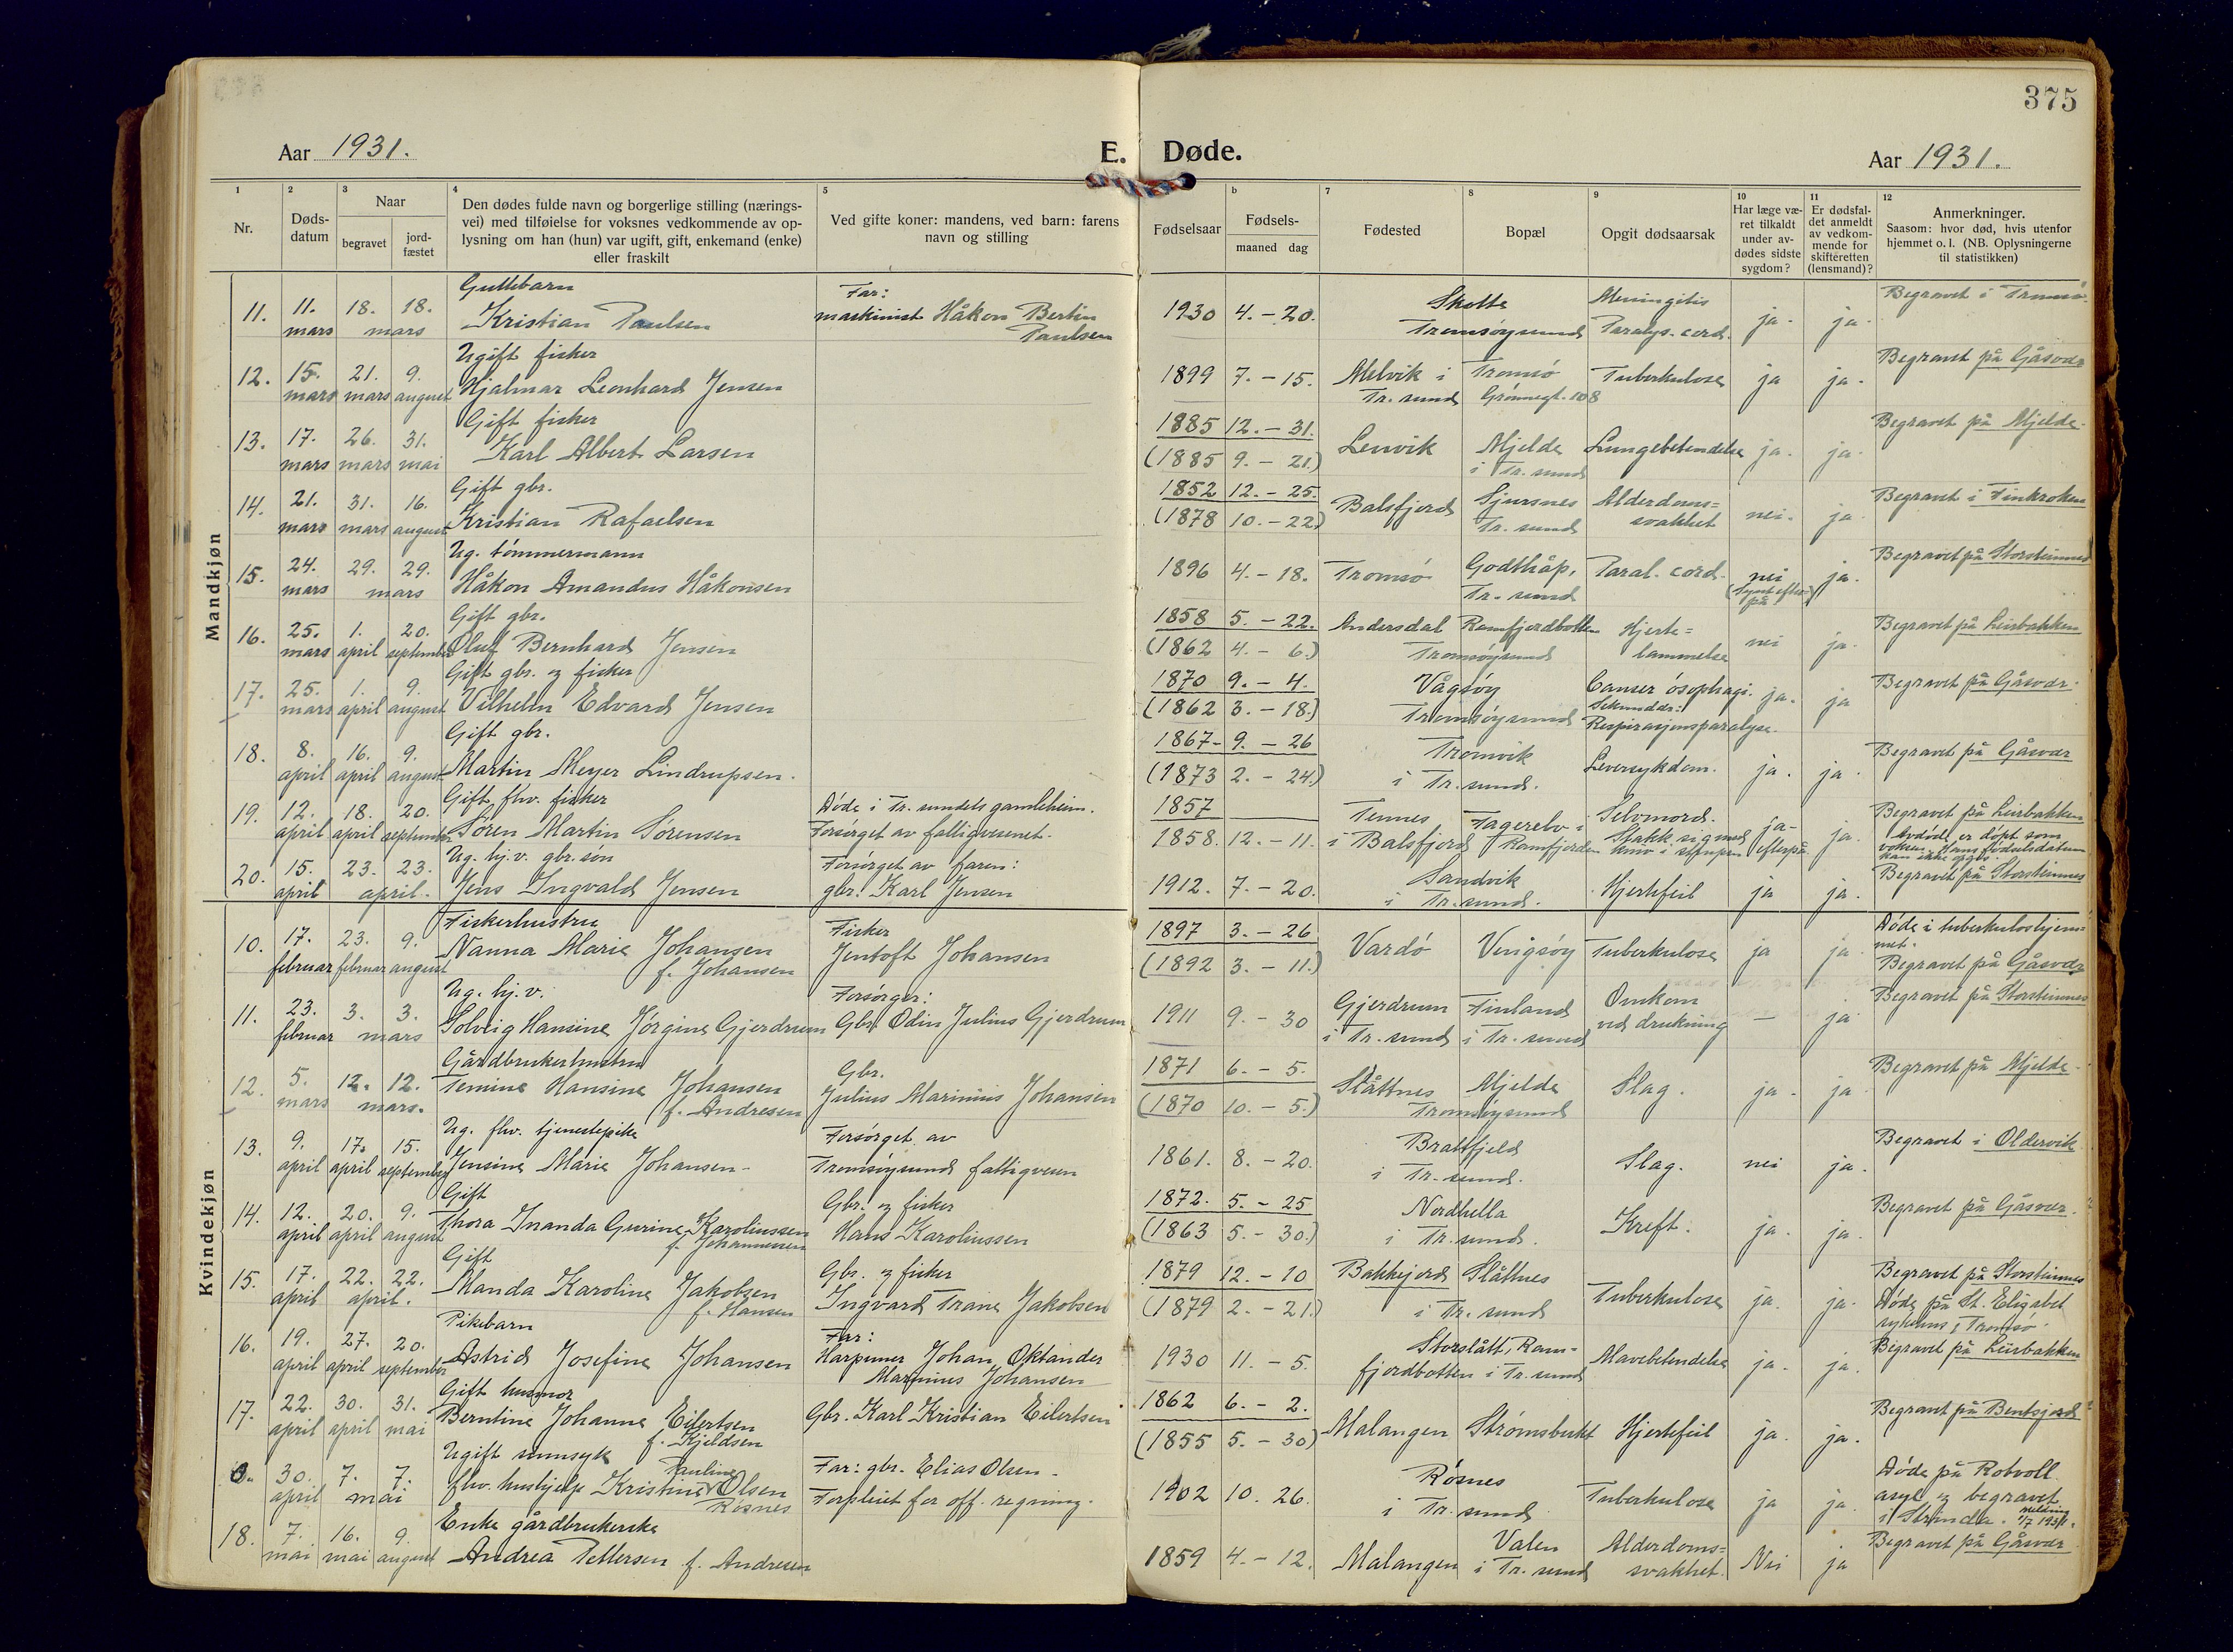 375
Aar 1931.
E. Døde.
Aar 1931.
1 2 3 4 5 b 7 8 9 10 11 12
Nr.
Døds-
datum
Naar
begravet
jord-
fæstet
Den dødes fulde navn og borgerlige stilling (nærings-
vei) med tilføielse for voksnes vedkommende av op-
lysning om han (hun) var ugift, gift, enkemand (enke)
eller fraskilt
Ved gifte koner: mandens, ved barn: farens
navn og stilling
Fødselsaar
Fødsels-
maaned dag
Fødested
Bopæl
Opgit dødsaarsak
Har læge væ-
ret tilkaldt
under av-
dødes sidste
sygdom?
Er dødsfal-
det anmeldt
av vedkom-
mende for
skifteretten
(lensmand)?
Anmerkninger.
Saasom: hvor død, hvis utenfor
hjemmet o. l. (NB. Oplysningerne
til statistikken)
Mandkjøn
Guttebarn Far: Skotta Meningitis Begravet i Tromsø.
11. 11. 18. 18. Kristian Paulsen maskinist Håkon Bertin 1930 4. - 20. ja. ja.
mars mars Paulsen Tromsøysund Paralys. cord.
Ugift fisker Begravet på Gåsvær
12. 15. 21. 9. Hjalmar Leonhard Jensen 1899 7. - 15. Melvik i Tromsø Tuberkulose ja ja.
mars mars august Tr. sund Grønnegt. 108
Gift fisker 1885 12. - 31. Begravet på Mjelde.
13. 17. 26. 31. Karl Albert Larsen Lenvik Mjelde Lungebetendelse ja. ja.
mars mars mai (1885 9. - 21.) i Tr. sund
Gift gbr. 1852 12. - 25. Begravet i Finkroken
14. 21. 31. 16. Kristian Rafaelsen Balsfjord Sjursnes Alderdoms= nei. ja.
mars mars august (1878 10. - 22.) Tr. sund svakhet
Ug. tømmermann Begravet på Storsteinnes
15. 24. 29. 29. Håkon Amandus Håkonsen 1896 4. - 18. Tromsø Godthåp, Paral. cord. nei ja.
mars mars Tr. sund (Synt efter-
på)
Gift gbr. 1858 5. - 22. Andersdal Ramfjordbotten Hjerte= Begravet på Leirbakken
16. 25. 1. 20. Oluf Bernhard Jensen nei ja.
mars april september (1862 4. - 6.) Tromsøysund lammelse
Gift gbr. og fisker 1870 9. - 4. Vågsøy Canser øsophagi. Begravet på Gåsvær.
17. 25. 1. 9. Vilhelm Edvard Jensen Sekundær: ja. ja
mars april august (1862 3. - 18.) Tromsøysund Respirasjonsparalyse.
Gift gbr. 1867 - 9. - 26 Tromvik Begravet på Gåsvær
18. 8. 16. 9. Martin Meyer Lindrupsen. Leversykdom. ja. ja.
april april august (1873 2. - 24.) i Tr. sund.
Gift, fhv. fisker Døde i Tr. sundets gamleheim. 1857 Tennes Fagerelv i Selvmord. Begravet på Leirbakken
19. 12. 18. 20. Søren Martin Sørensen Forsørget av fattigvesenet. 1858. 12. - 11. i Balsfjord Ramfjorden Stakk sig med ja- ja. Avdøde er døpt som
april april september kniv i strupen efterpå voksen. Hans fødselsdatum
kan ikke opgis.
Ug. hj. v. gbr. søn Forsørget av faren: Sandvik Begravet på Storsteinnes
20. 15. 23. 23. Jens Ingvald Jensen gbr. Karl Jensen 1912. 7. - 20. i Tr. sund. Hjertefeil ja ja.
april april.
Kvindekjøn
Fiskerhustru Fisker 1897 3. - 26 Døde i tuberkuloshjem-
10. 17. 23. 9. Nanna Marie Johansen Jentoft Johansen Vardø Vengsøy Tuberkulose ja ja. met.
februar februar august f. Johansen (1892 3. - 11.) Begravet på Gåsvær
Ug. hj. v. Forsørger: Gjerdrum Finland Omkom Begravet på Storsteinnes
11. 23. 3. 3. Solveig Hansine Jørgine Gjerdrum Gbr. Odin Julius Gjerdrum 1911 9. - 30 i Tr. sund i Tr. sund ved drukning — ja
februar mars
Gårdbrukerhustru Gbr. 1871 6. - 5. Begravet på Mjelde.
12. 5. 12. 12. Temine Hansine Johansen Julius Marinius Johansen Slåttnes Mjelde Slag. ja. ja.
mars mars. f. Andresen (1870 10. - 5.) Tromsøysund
Ug. fhv. tjenestepike Forsørget av Brattfjeld Begravet i Oldervik
13. 9. 17. 15. Jensine Marie Johansen - Tromsøysund fattigvesen 1861. 8. - 20. i Tr. sund. Slag. nei ja.
april april september
Gift Gbr. og fisker 1872. 5. - 25 Nordhella Begravet på Gåsvær.
14. 12. 20. 9. Thora Inanda Gurine Karoliussen Hans Karoliussen Kreft. ja. ja.
april april august f. Johannessen (1863 5. - 30.) i Tr. sund.
Gift Gbr. og fisker 1879 12. - 10 Bakkejord Slåttnes Begravet på Storsteinnes
15. 17. 22. 22. Manda Karoline Jakobsen Ingvard Trane Jakobsen Tuberkulose ja. ja. Døde på St. Elisabet
april april. f. Hansen (1879 2. - 21.) i Tr. sund sykehus i Tromsø.
Pikebarn Far: Storslått, Ram-
16. 19. 27. 20. Astrid Josefine Johansen Harpuner Johan Oktander 1930 11. - 5. fjordbotten i Tr. sund Mavebetendelse ja. ja. Begravet på Leirbakken
april april september Marinius Johansen
Gift husmor 1862 6. - 2.
17. 22. 30. 31. Berntine Johanne Eilertsen Gbr. Karl Kristian Eilertsen Malangen Strømsbukt Hjertefeil ja. ja. Begravet på Bentsjord
april april mai f. Kjeldsen (1855 5. - 30)
Ugift sinnsyk Pauline Far: gbr. Elias Olsen. Røsnes Døde på Rotvoll
0. 30. 7. 7. fhv. hushjelp Kristine Olsen Forpleiet for off. regning. 1902 10. 26. i Tr. sund Tuberkulose ja ja. asyl og begravet
april mai Røsnes i Strinda. melding 1/7 1931.
Enke gårdbrukerske Valen Alderdoms= Begravet på Gåsvær
18. 7. 16. 9. Andrea Pettersen f. Andresen 1859 4. - 12. Malangen i Tr. sund svakhet. Nei ja
mai mai august